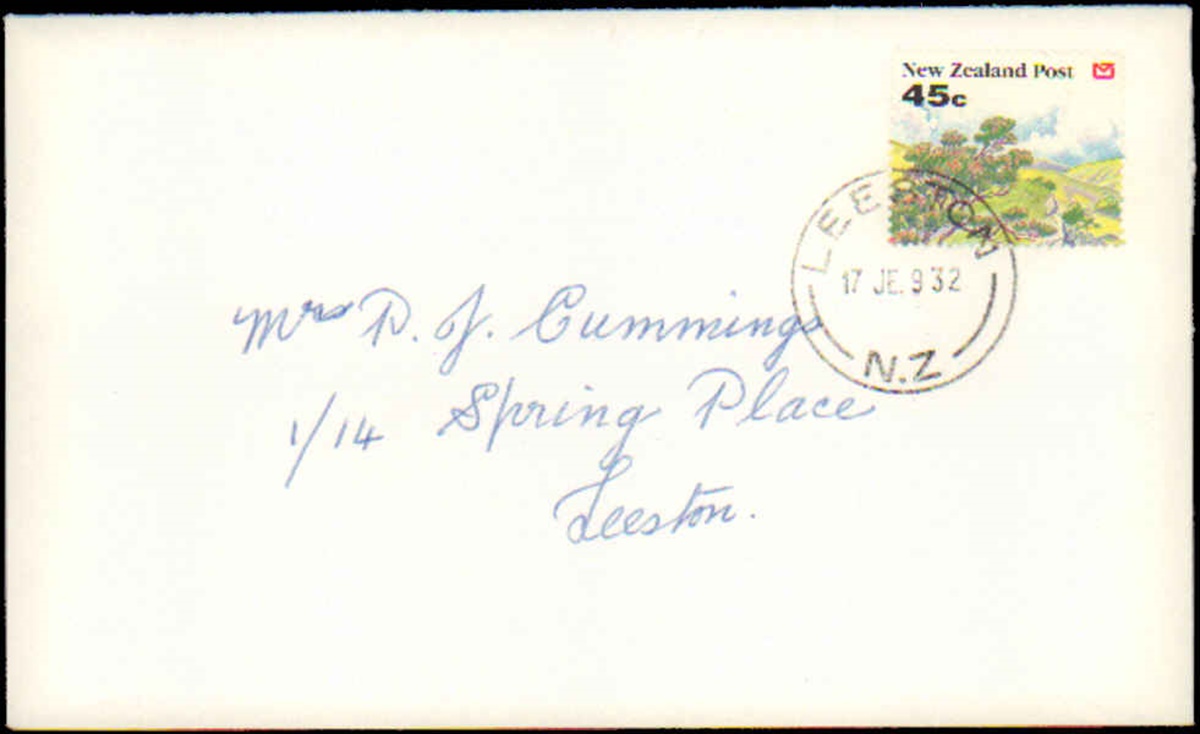 New Zealand Post
45c
LEESTON
17 JE. 9 32
N.Z
Mrs D. J. Cummings
1/14 Spring Place
Leeston.